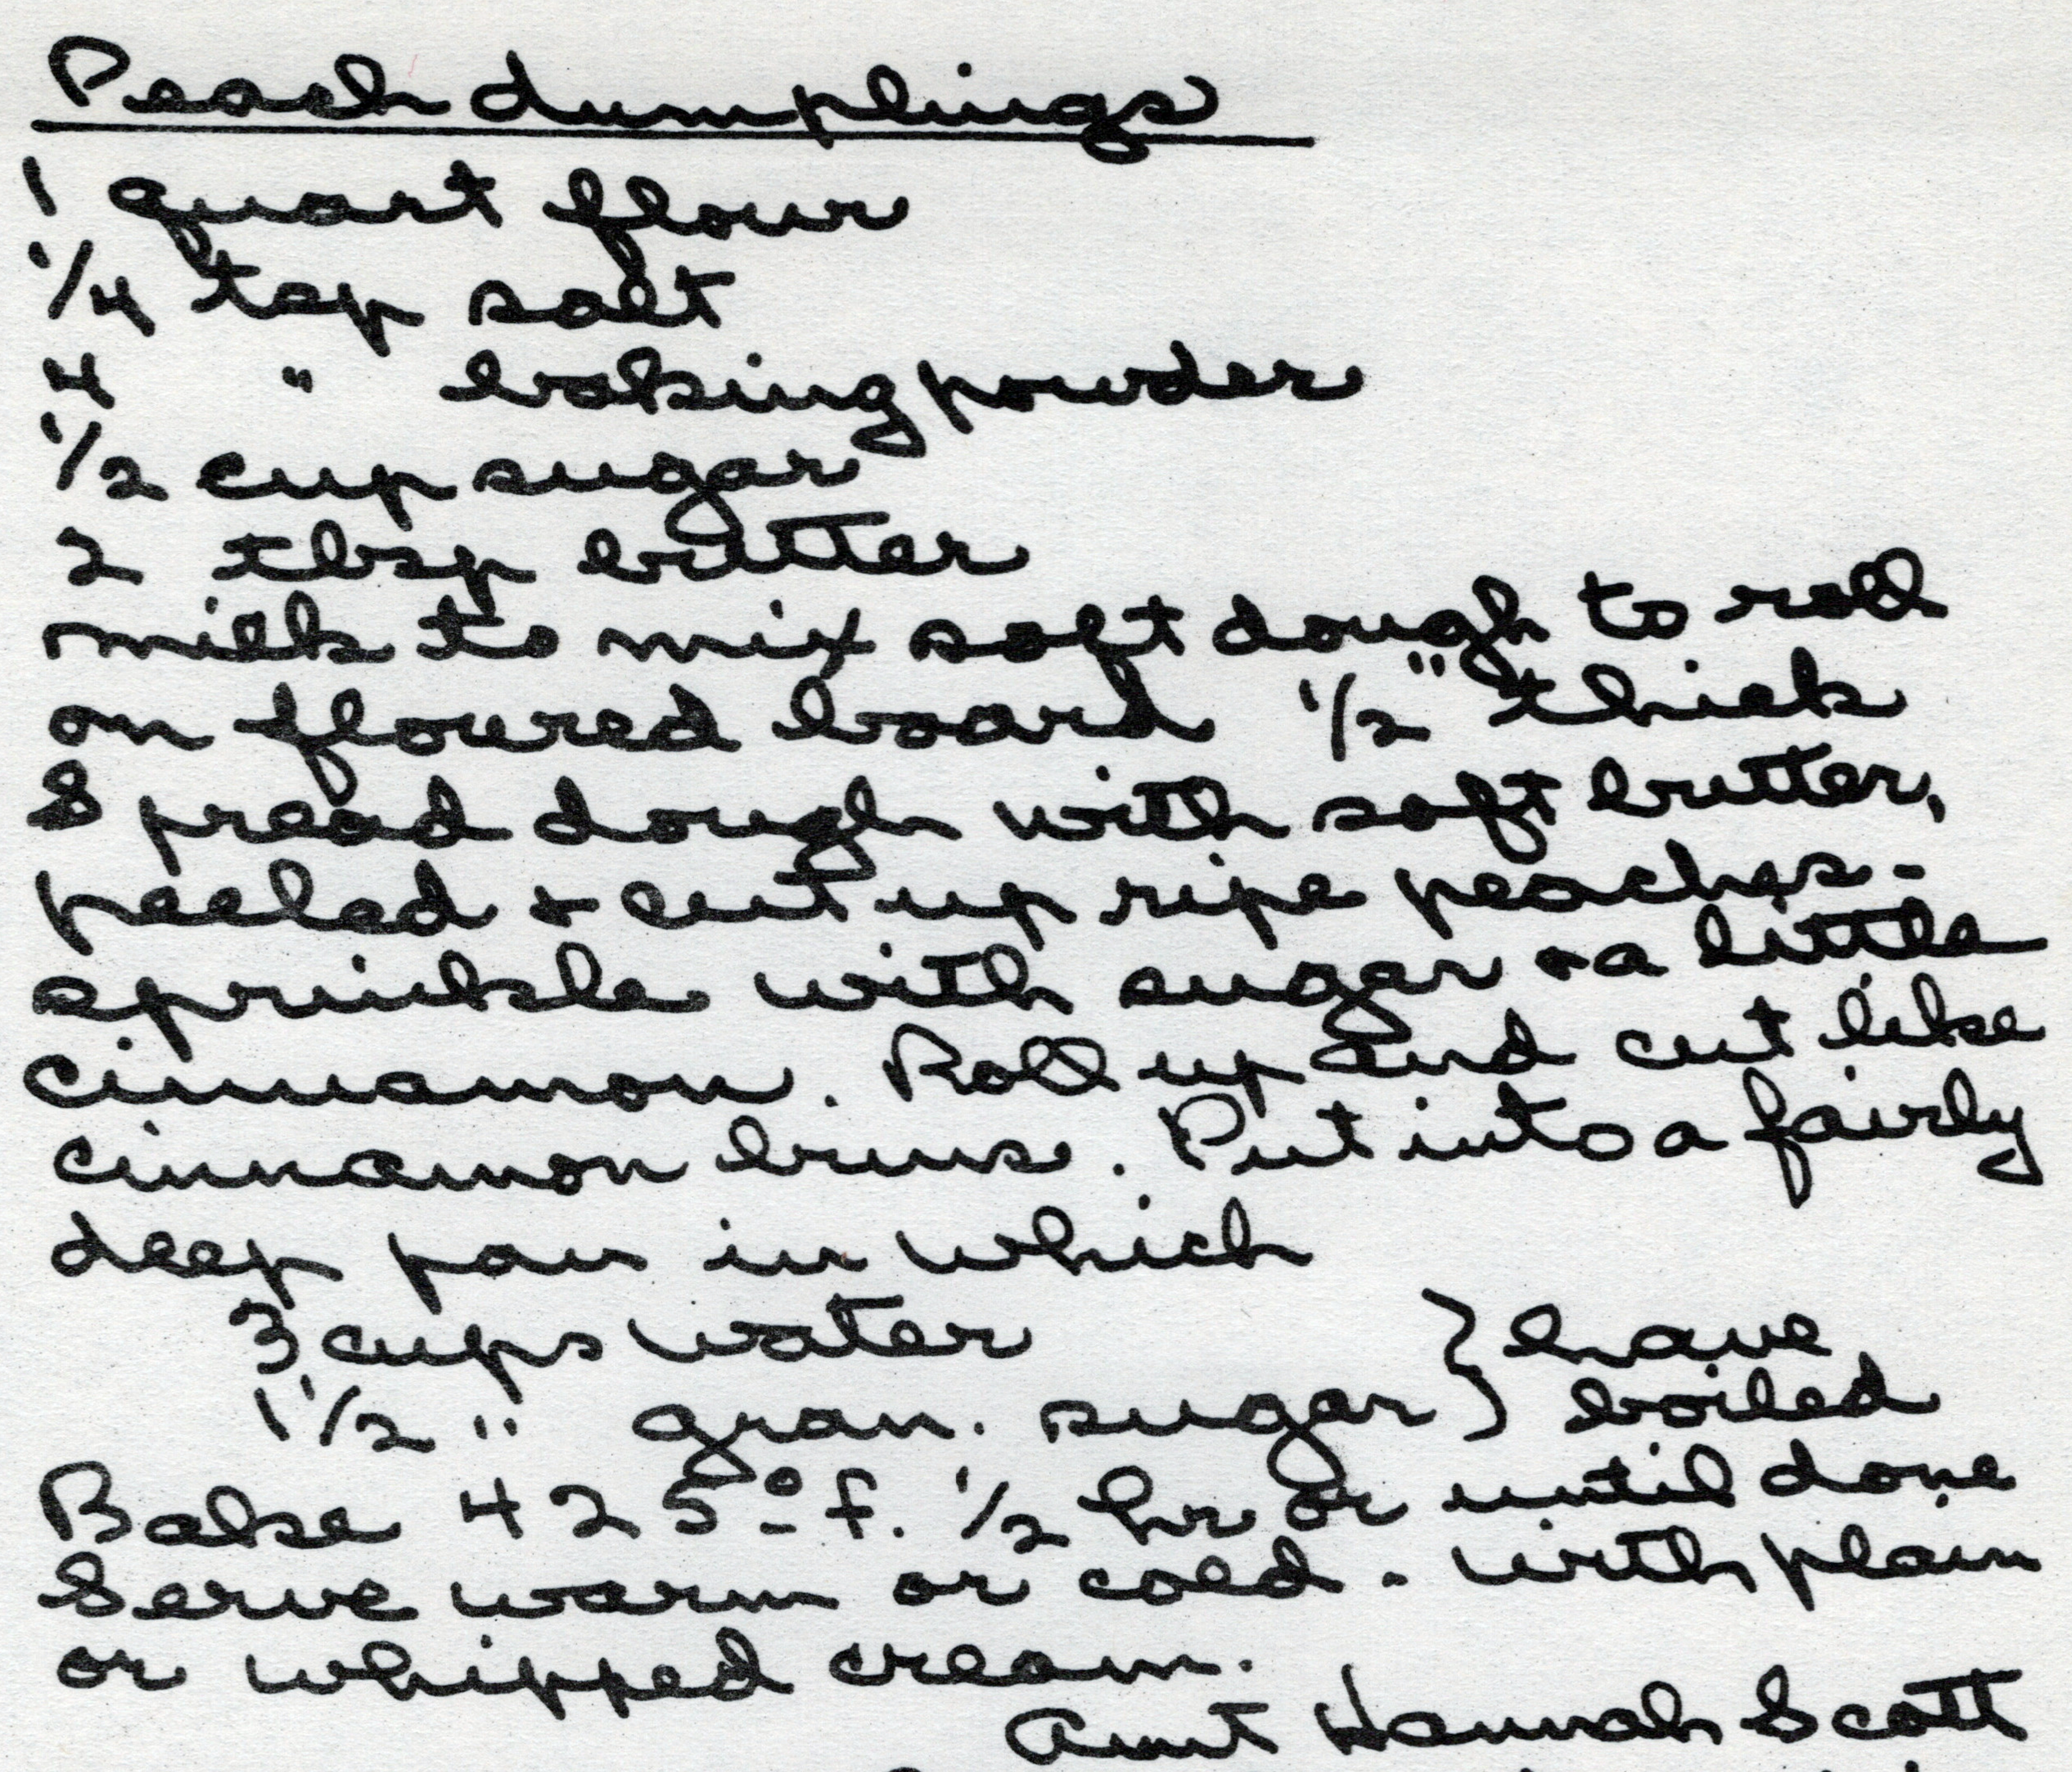 Peach dumplings
1 quart flour
1/4 tsp salt
4 " baking powder
1/2 cup sugar
2 tbsp butter
milk to mix soft dough to roll
on floured board 1/2" thick
Spread dough with soft butter,
peeled & cut up ripe peaches -
sprinkle with sugar & a little
cinnamon. Roll up and cut like
cinnamon buns. Put into a fairly
deep pan in which
3 cups water } have
1 1/2 " gran. sugar } boiled
Bake 425º f. 1/2 hr or until done
Serve warm or cold - with plain
or whipped cream.
Aunt Hannah Scott